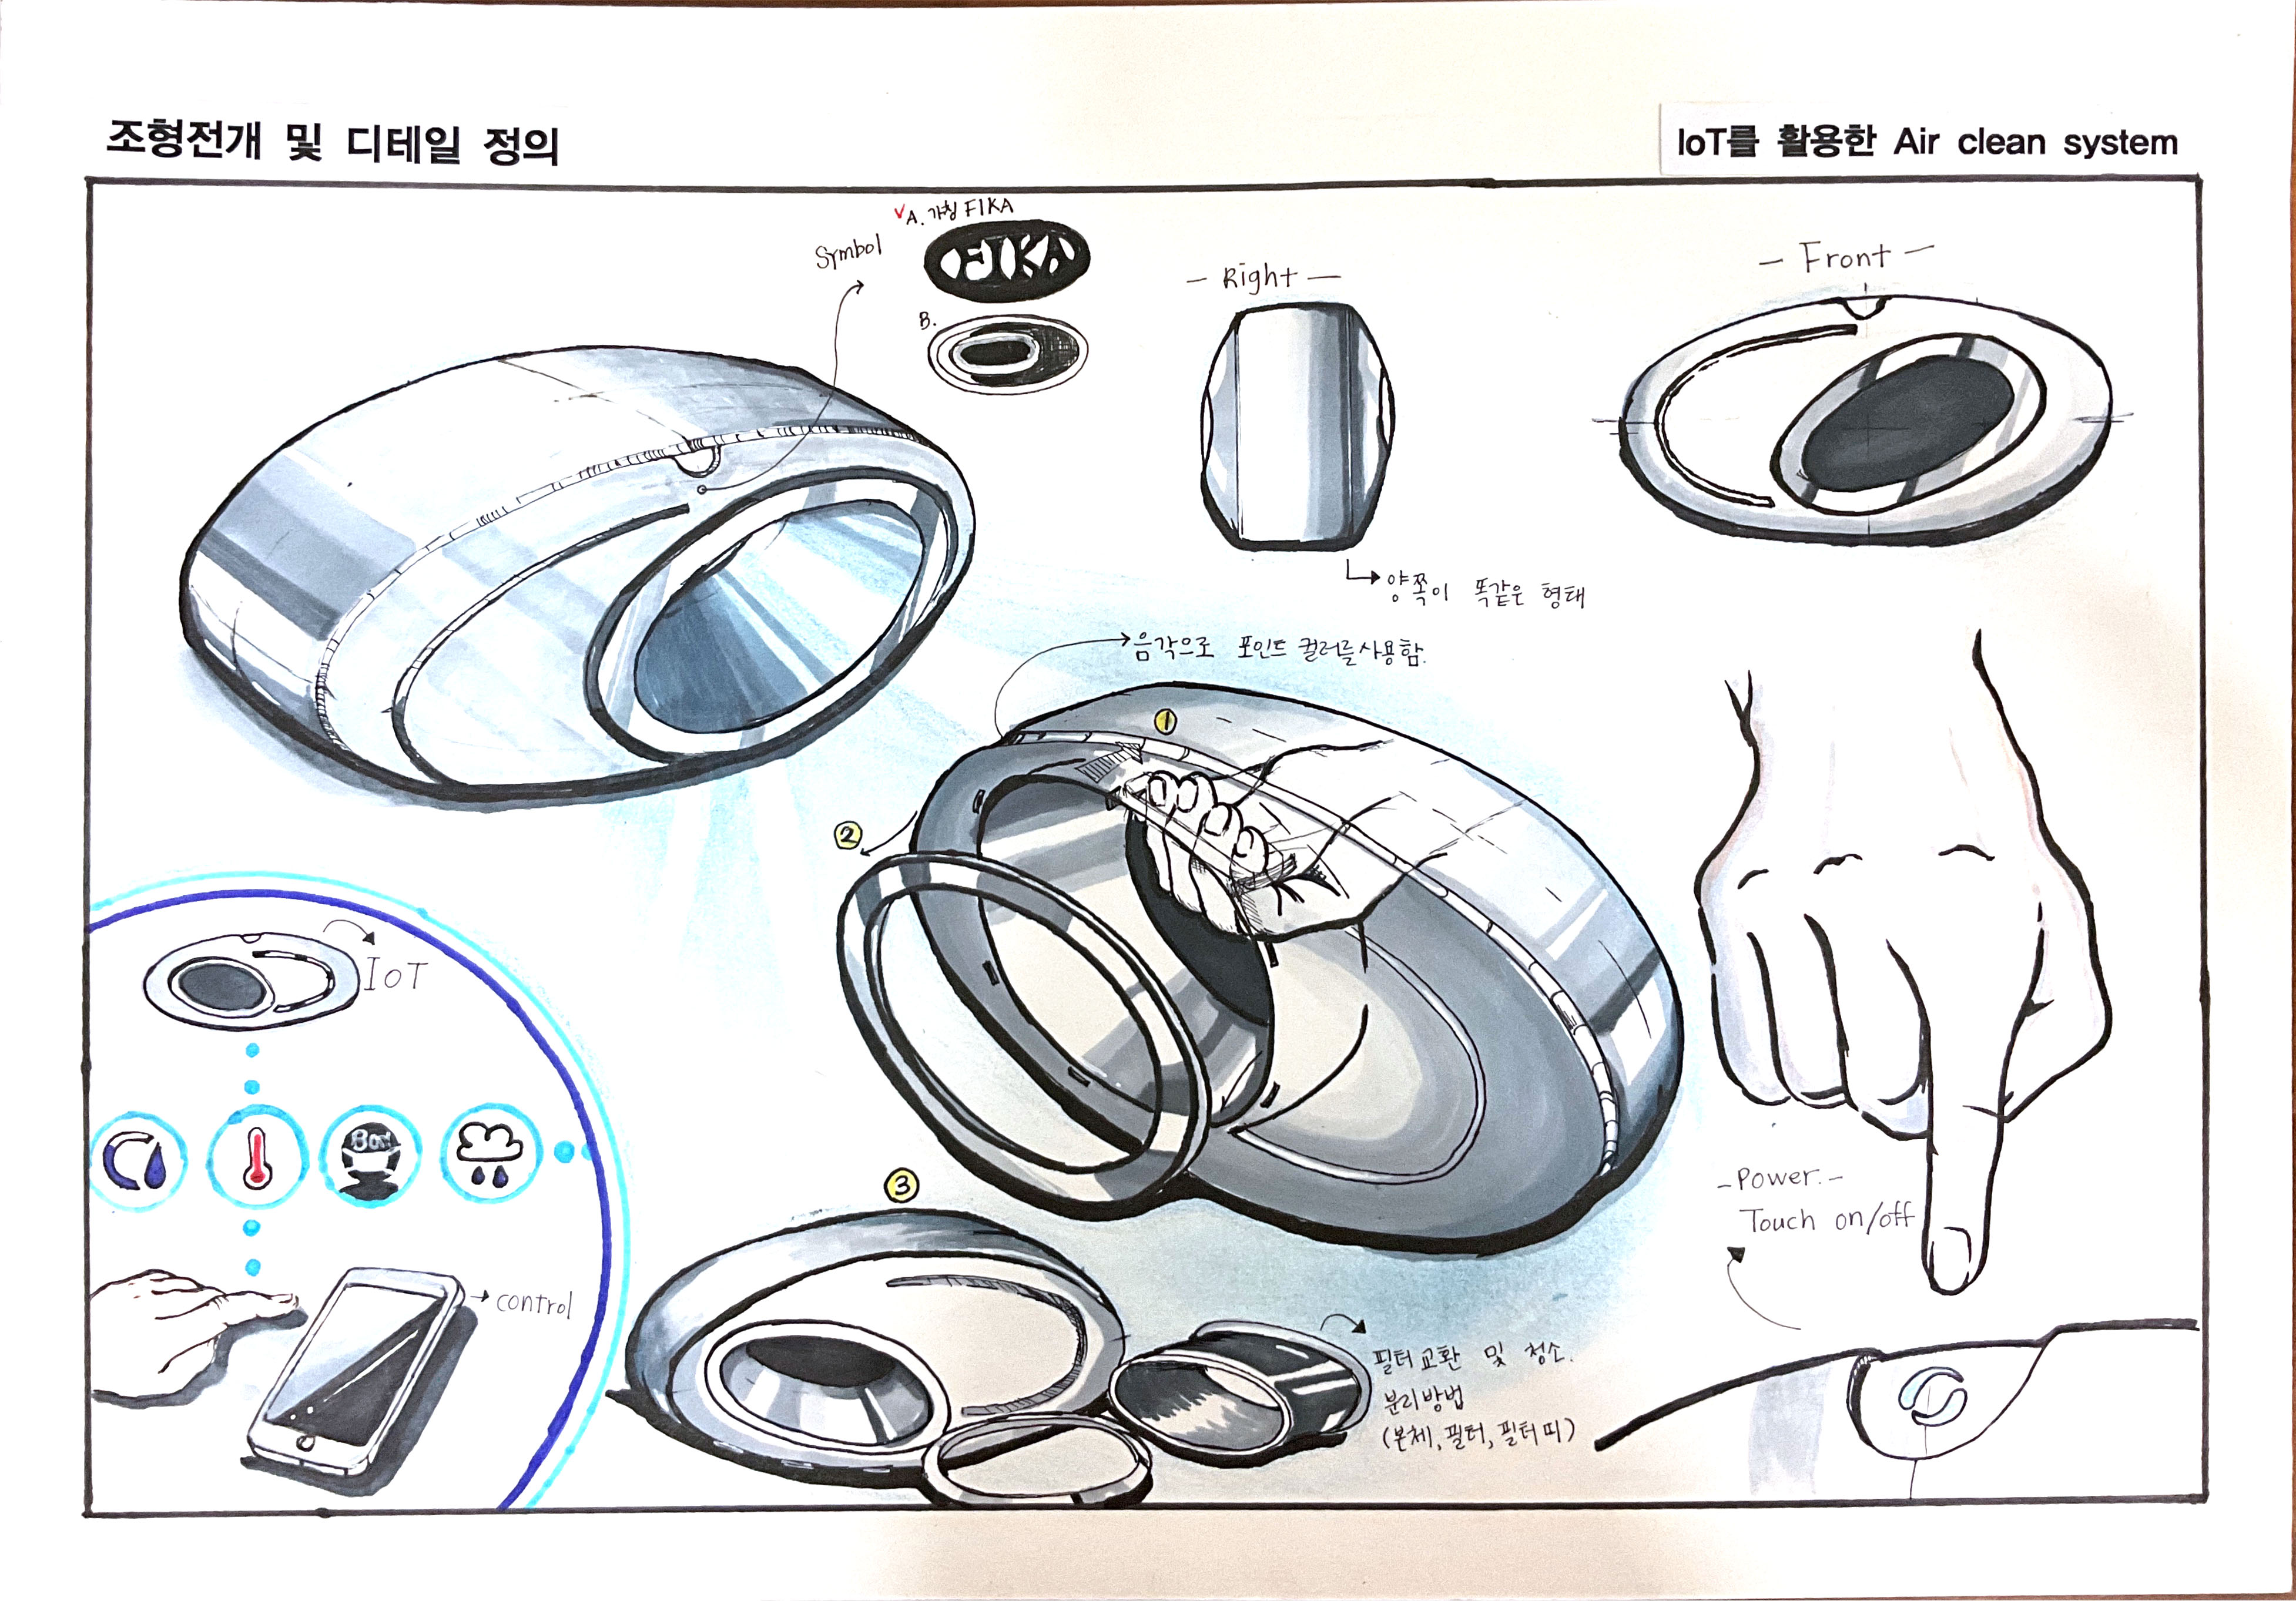 조형전개 및 디테일 정의
IoT를 활용한 Air clean system
Symbol
✓A. 가칭 FIKA
FIKA
B.
- Right -
- Front -
양쪽이 똑같은 형태
음각으로 포인트 컬러를 사용함.
1
2
IoT
3
control
필터교환 및 청소.
분리방법
(본체, 필터, 필터띠)
- Power. -
Touch on/off